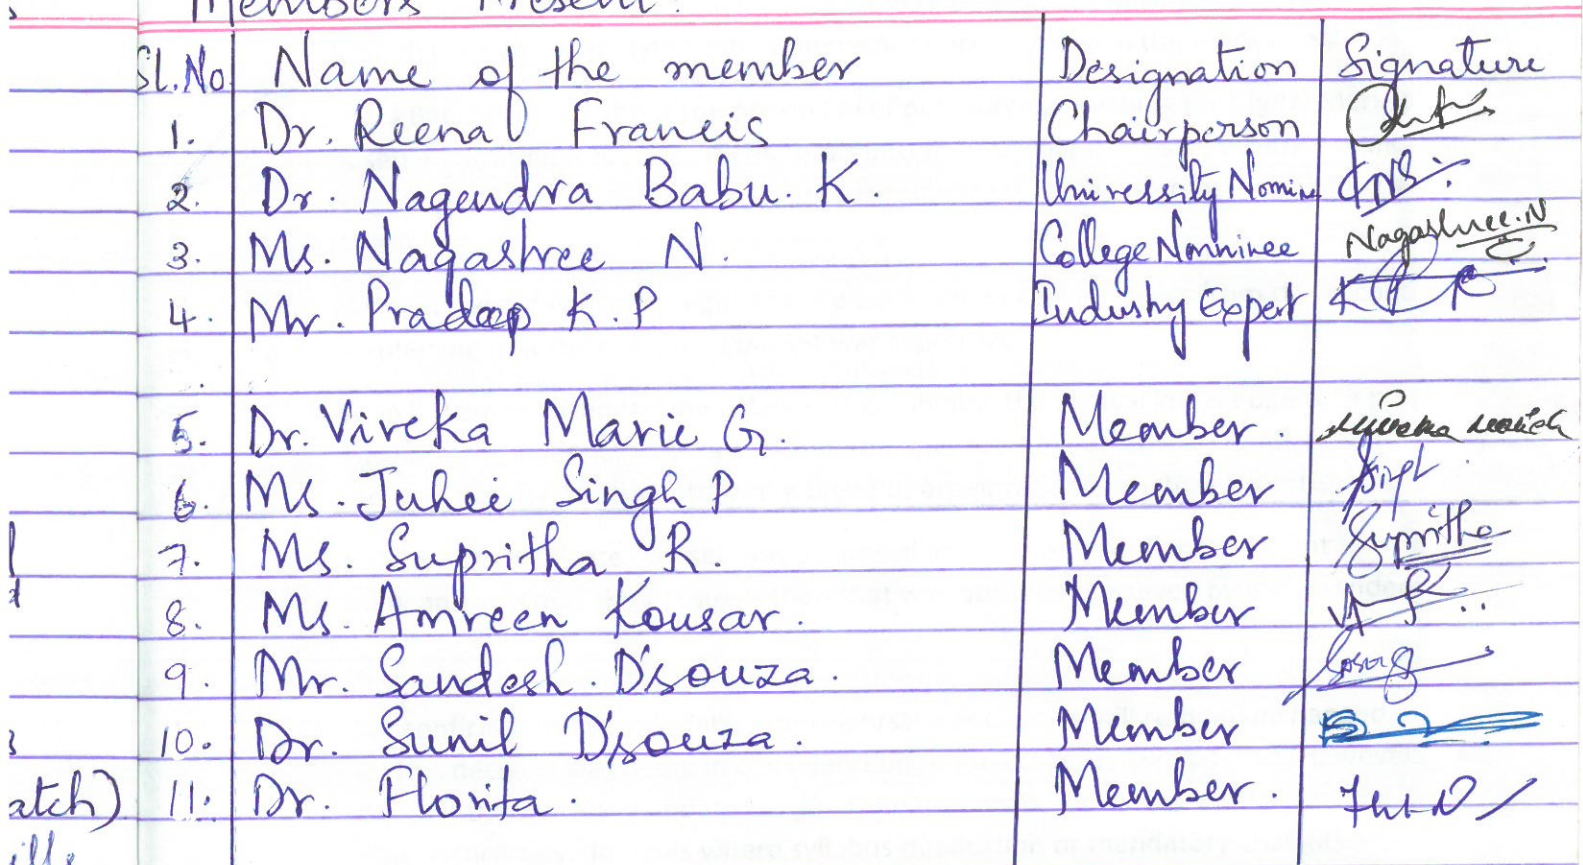 Members Present.
Sl.No Name of the member Designation Signature
1. Dr. Reena Francis Chairperson
2. Dr. Nagendra Babu. K. University Nomine
3. Ms. Nagashree N. College Nominee Nagashree.N
4. Mr. Pradeep K.P Industry Expert
5. Dr. Viveka Marie G. Member.
6. Ms. Juhei Singh P Member
7. Ms. Supritha R. Member Supritha
8. Ms. Amreen Kousar. Member
9. Mr. Sandesh. D'souza. Member
10. Dr. Sunil D'souza. Member
atch) 11. Dr. Florita. Member.